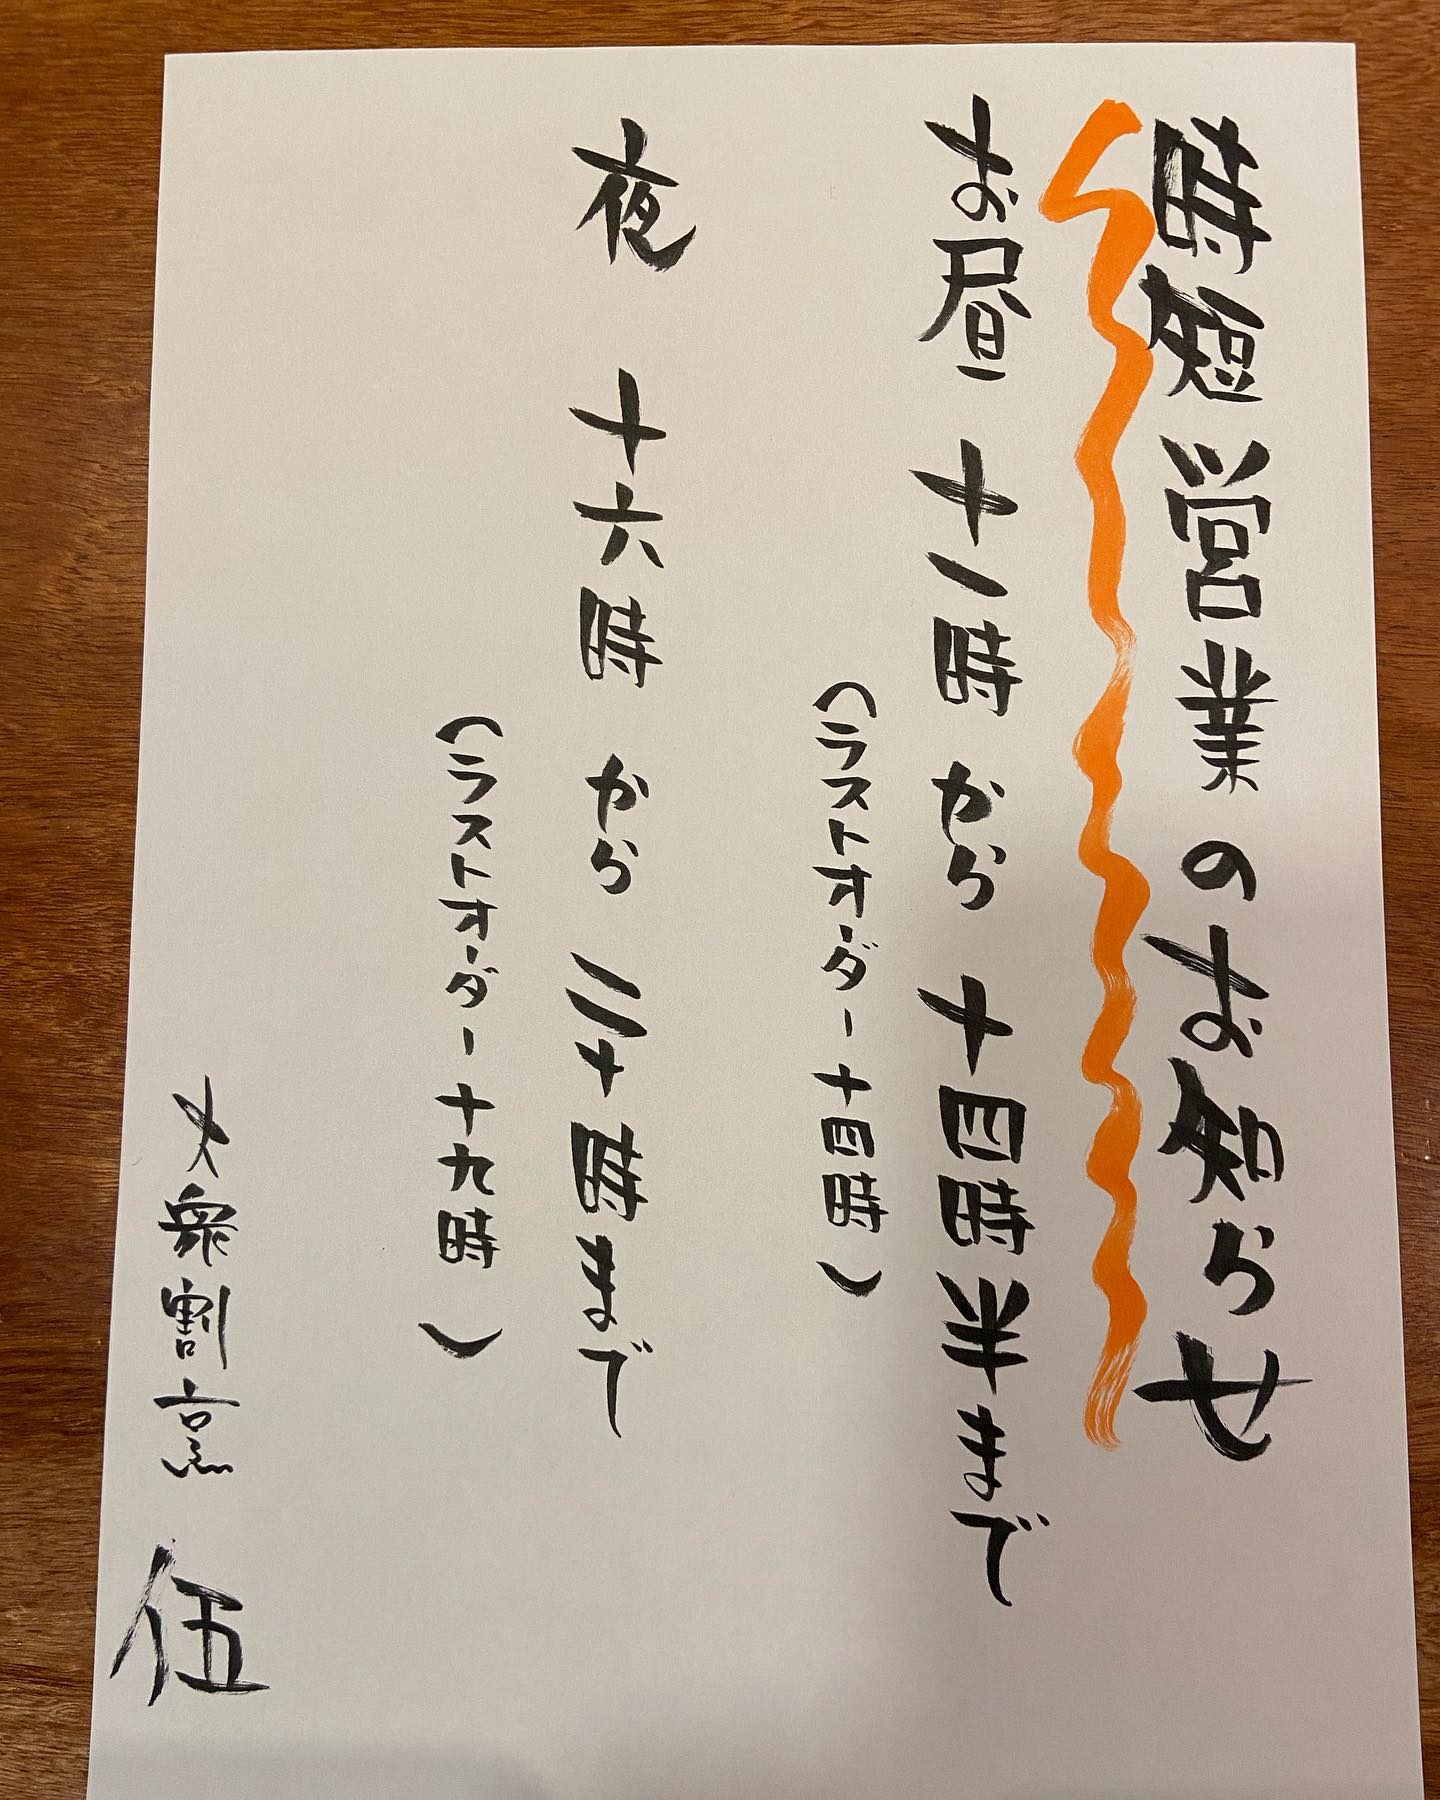 時短営業のお知らせ
お昼 十一時から十四時半まで
(ラストオーダー十四時)
夜 十六時から二十時まで
(ラストオーダー十九時)
大衆割烹 伍